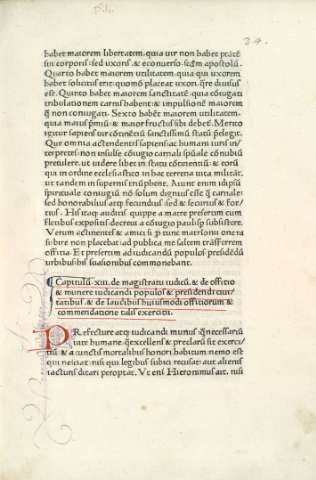 24.
habet maiorem libertatem. quia uir non habet ptatē
sui corporis sed uxoris. & econuerso. secundū apostolū.
Quarto habet maiorem utilitatem. quia qui uxorem
habet solicitus erit quomō placeat uxori. & diuisus
est. Quarto habet maiorem sanctitatē. quia cōiugati
tribulationem carnis habent: & impulsionē maiorem
q̄ non coniugati. Sexto habēt maiorem utilitatem.
quia maius p̄miū & maior fructus sibi debet. Merito
igitur sapiens uir cōtinētū sanctissimū statū p̄elegit.
Que omnia attendentis sapiensac humani iuris in/
terpretis non insulse cōiugio carnali spūale cōnubiū
pretulere. ut uidere licet in statu cōtinentiū & torū
qua in ordine ecclesiastico in hac terrena uita militāt.
ut tandem in supernis triūphent. Aiunt enim id ipsū
spirituale coniugiū nō solum dignius esse q̄ carnale
sed honorabilius atq; fecundius sed & securius & for/
tius. His itaq; auditis quippe a matre presertim cum
fletibus expositis decreui a cōiugio paulisp subsistere.
Verum attinentes & amici si p tunc matrimoniū nona
subire non placebat: ad publica me saltem trāsferrem
officia. Et presertim ad iudicandū populos presidēdū
urbibus hiis suasionibus commonebant.
Capitulū .xiii. de magistratu iudicū. & de officio
& munere iudicandi populos & presidendi ciui/
tatibus. & de laudibus huiusmodi officiorum &
commendatione talis exercitii.
PRefecture atq; iudicandi munus q̄ necessariū
uite humane. q̄ excellens & preclarū sit exerci/
tiū & a cunctis mortalibus honori habitum nemo est
qui nesciat. nisi qui legibus subici recusat. aut alienis
iacturis ditari peroptat. Vt eni Hieronimus ait. nisi